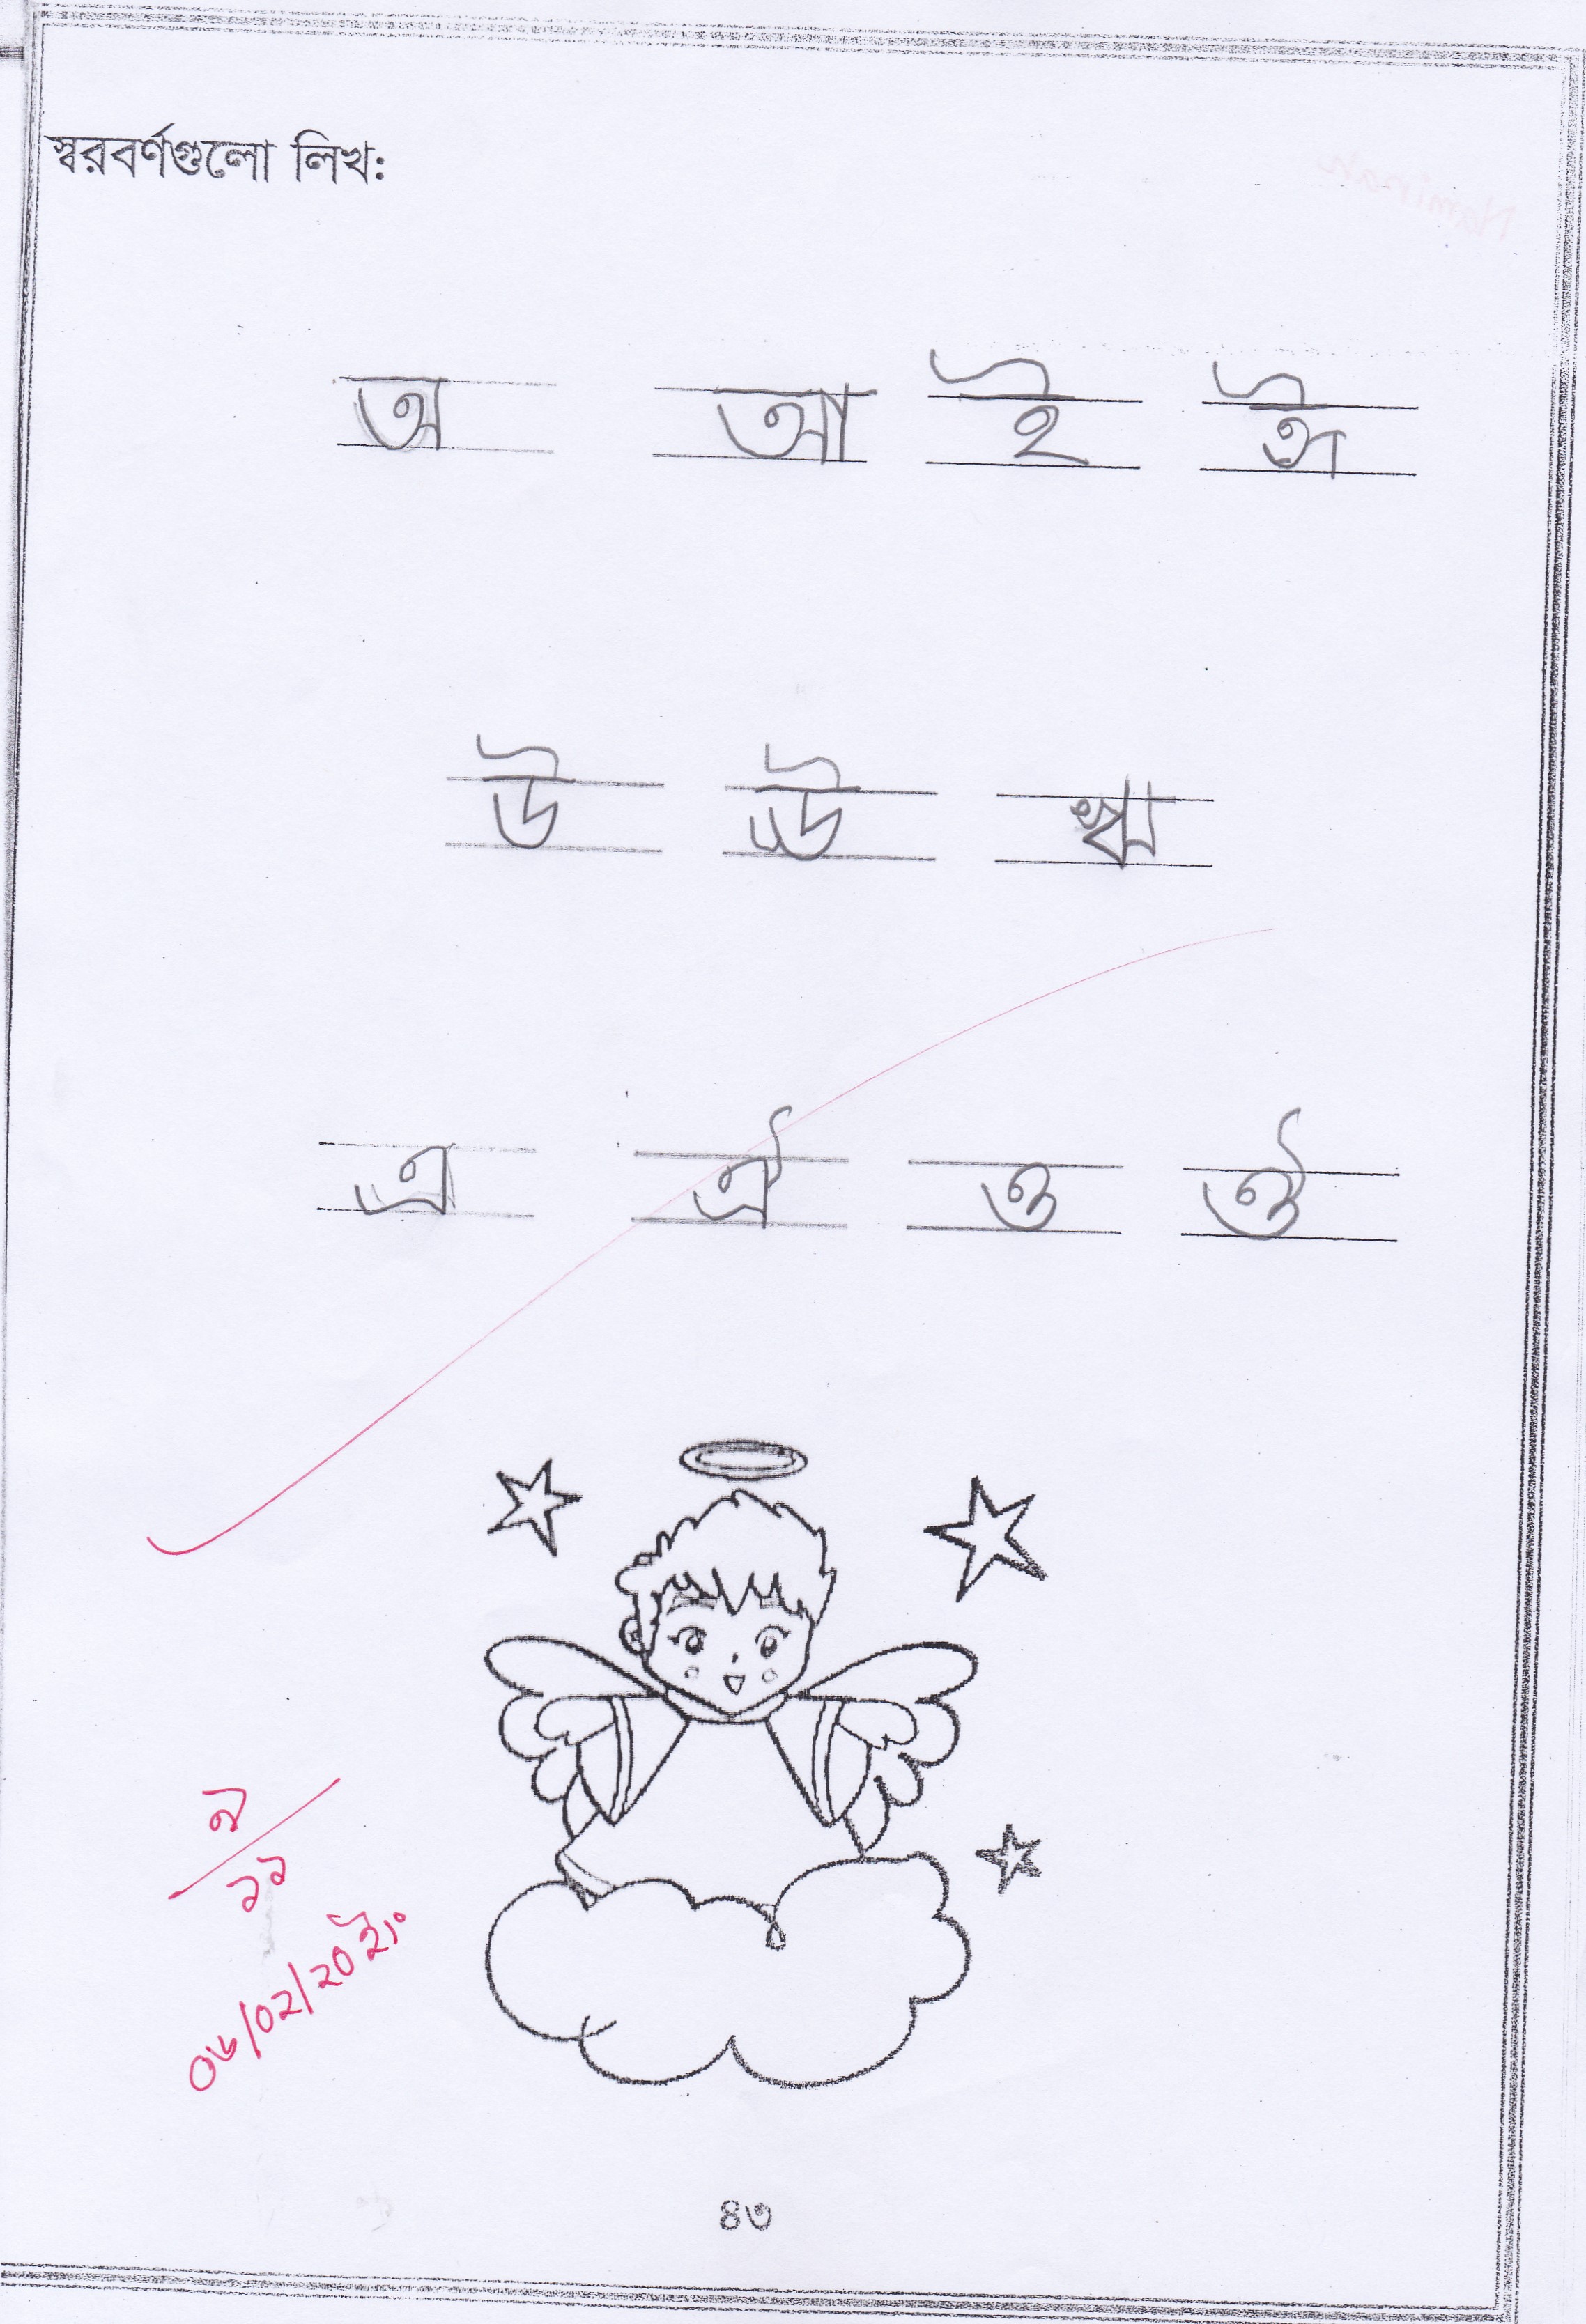 স্বরবর্ণগুলো লিখ:
অ আ ই ঈ
উ ঊ ঋ
এ ঐ ও ঔ
৯
১১
০৬/০২/২০২১ইং
৪৩